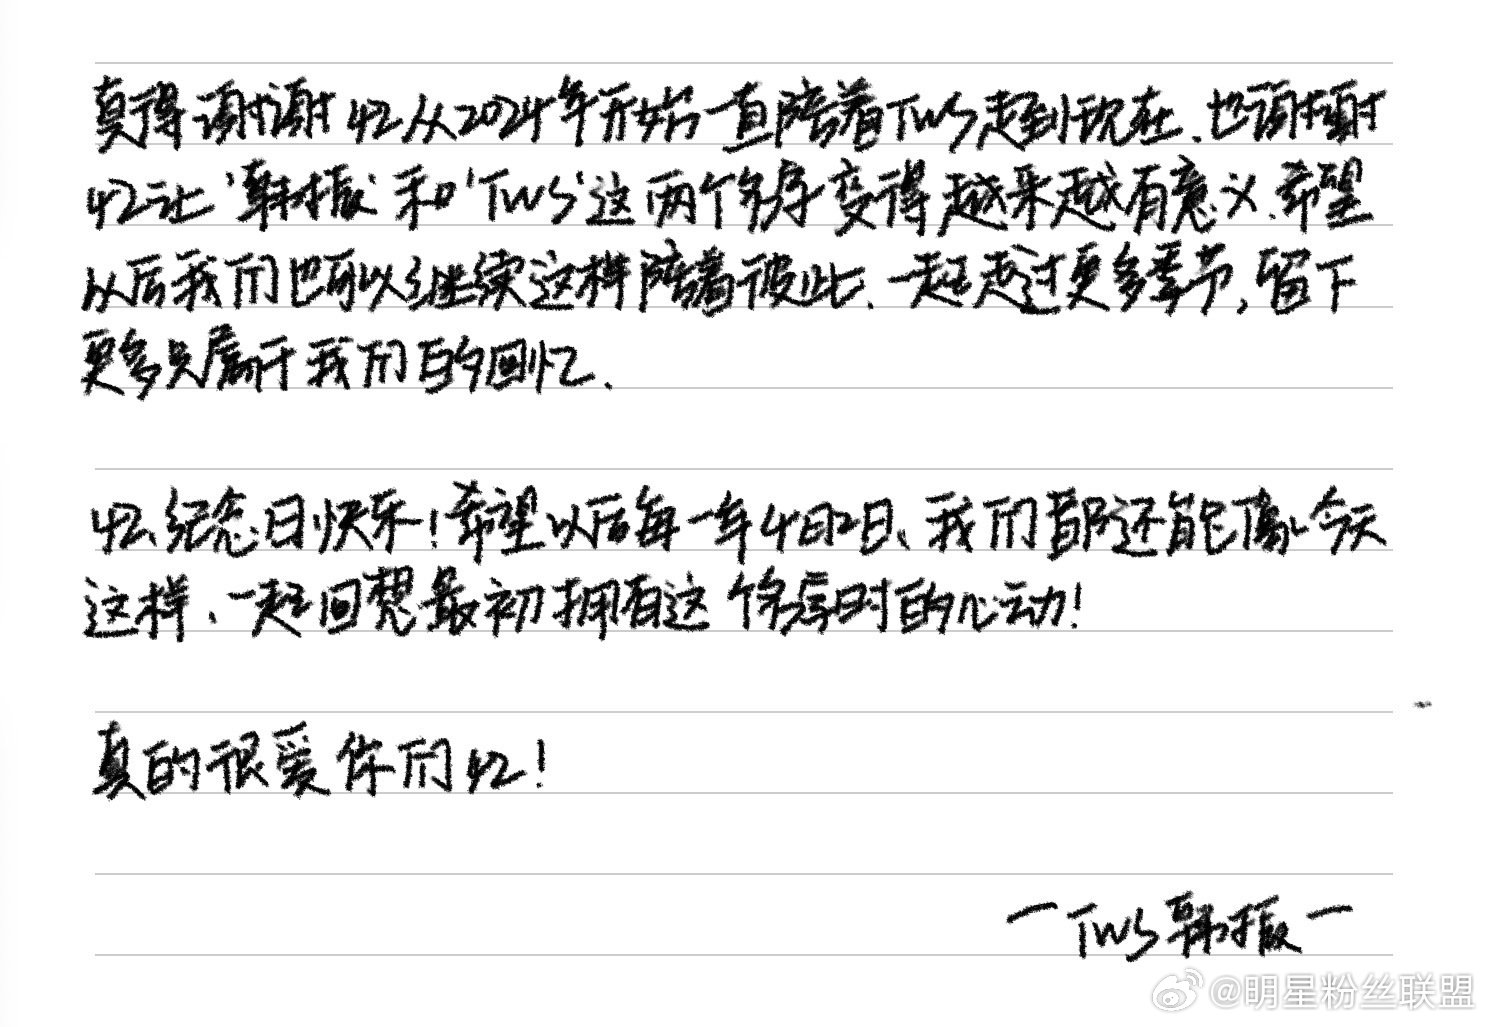 真得谢谢42从2024年开始一直陪着TWS走到现在.也谢谢
42让'韩振'和'TWS'这两个名字变得越来越有意义.希望
以后我们也可以继续这样陪着彼此.一起走过更多季节,留下
更多只属于我们的回忆.
42、纪念日快乐!希望以后每一年4月2日、我们都还能像今天
这样、一起回想最初拥有这个名字时的心动!
真的很爱你们42!
一TWS韩振一
@明星粉丝联盟